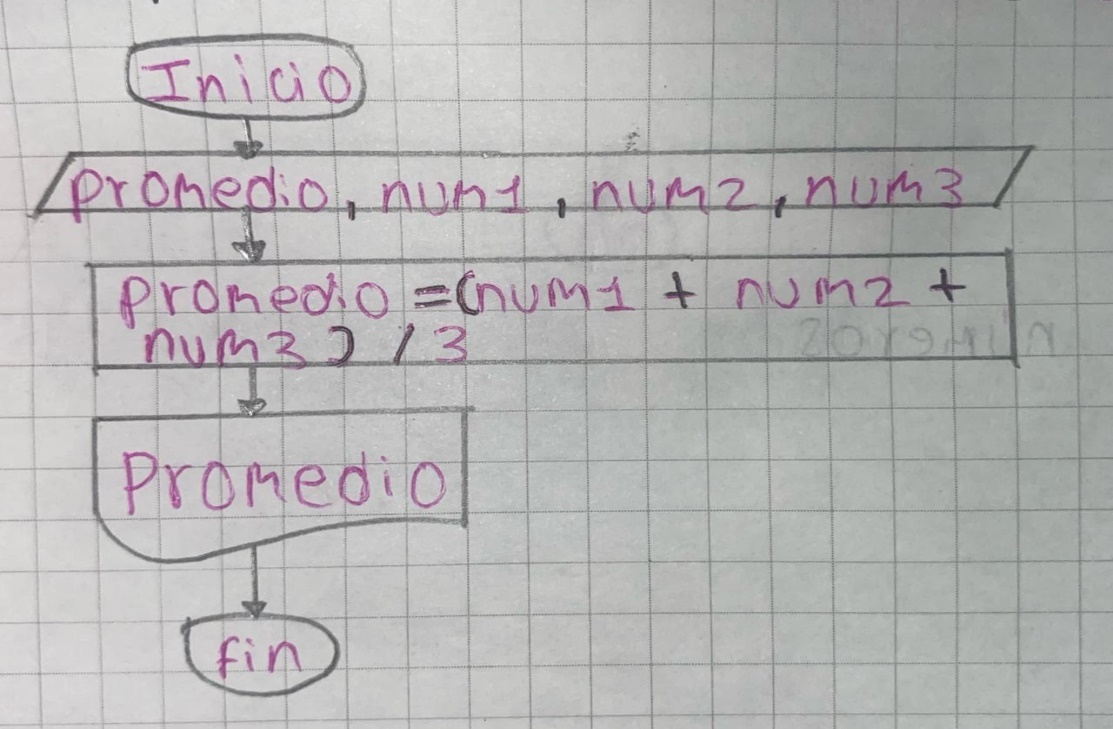 Inicio
promedio, num1, num2, num3
promedio =(num1 + num2 +
num3) / 3
Promedio
fin